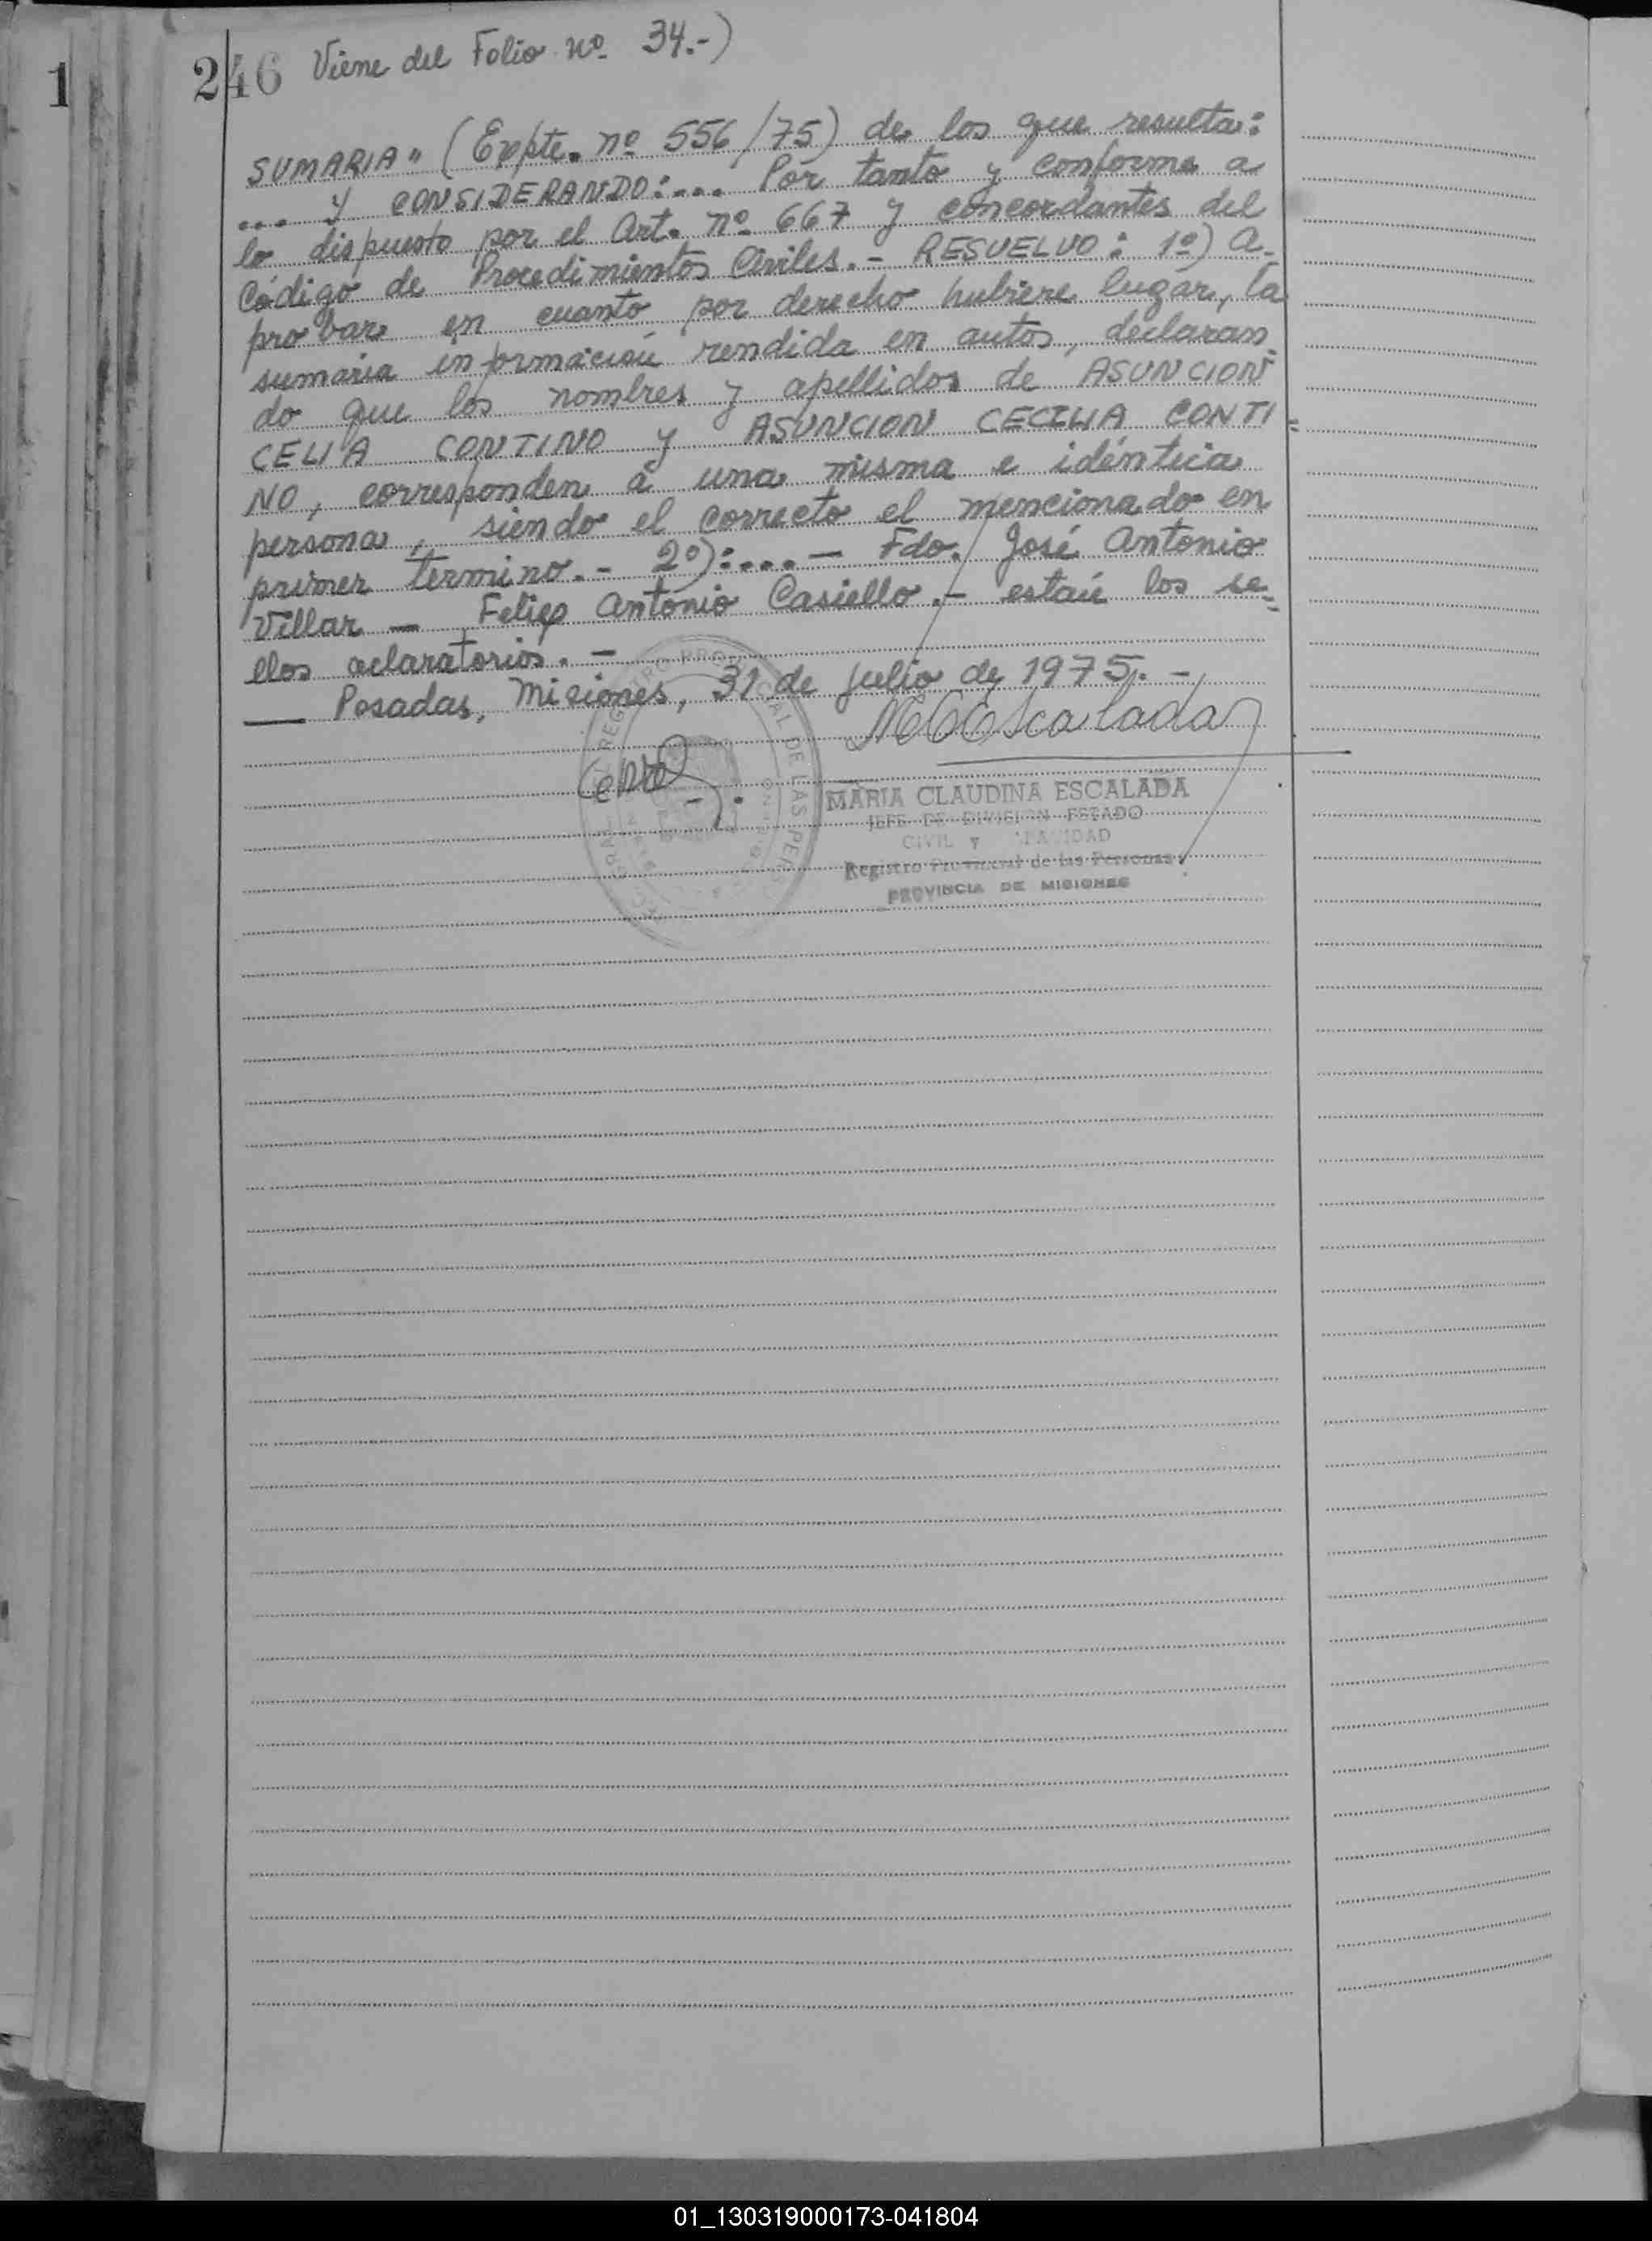 1
246 Viene del Folio nº 34.-)
SUMARIA" (Expte. nº 556/75) de los que resulta:
... Y CONSIDERANDO:... Por tanto y conforme a
lo dispuesto por el Art. nº 667 y concordantes del
Código de Procedimientos Civiles.- RESUELVO: 1º) a-
probar en cuanto por derecho hubiere lugar, la
sumaria información rendida en autos, declaran-
do que los nombres y apellidos de ASUNCION
CELIA CONTINO y ASUNCION CECILIA CONTI=
NO, corresponden a una misma e idéntica
persona, siendo el correcto el mencionado en
primer termino.- 2º):...- Fdo. José Antonio
Villar - Felix Antonio Casiello.- están los se=
llos aclaratorios.-
Posadas, Misiones, 31 de julio de 1975.-
MCEscalada
REGISTRO PROVINCIAL DE LAS PERSONAS
MARIA CLAUDINA ESCALADA
JEFE DE DIVISION ESTADO
CIVIL Y
Registro Provincial de las Personas
PROVINCIA DE MISIONES
01_130319000173-041804